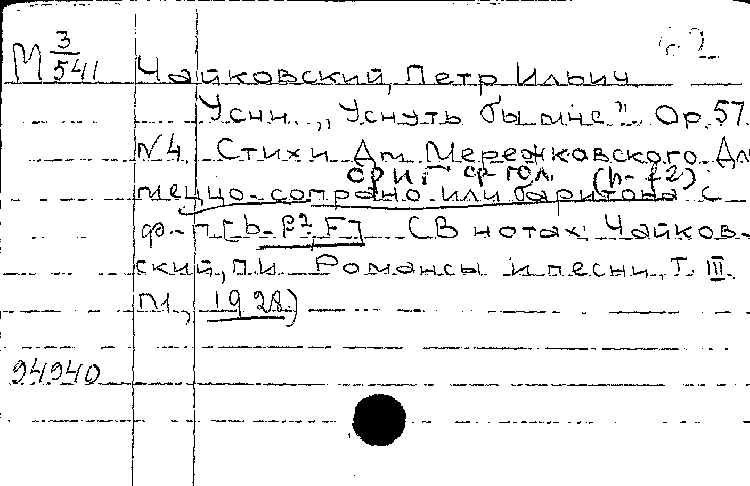 М 3/541
Чайковский, Петр Ильич
Усни. „Уснуть бы мне". Op. 57
№4 Стихи Дм Мережковского Для
ориг ср гол.
меццо-сопрано или баритона с
ф-п [b-f2, F] (В нотах: Чайков-
ский, П.И. Романсы и песни, Т. III.
М., 1928)
94940